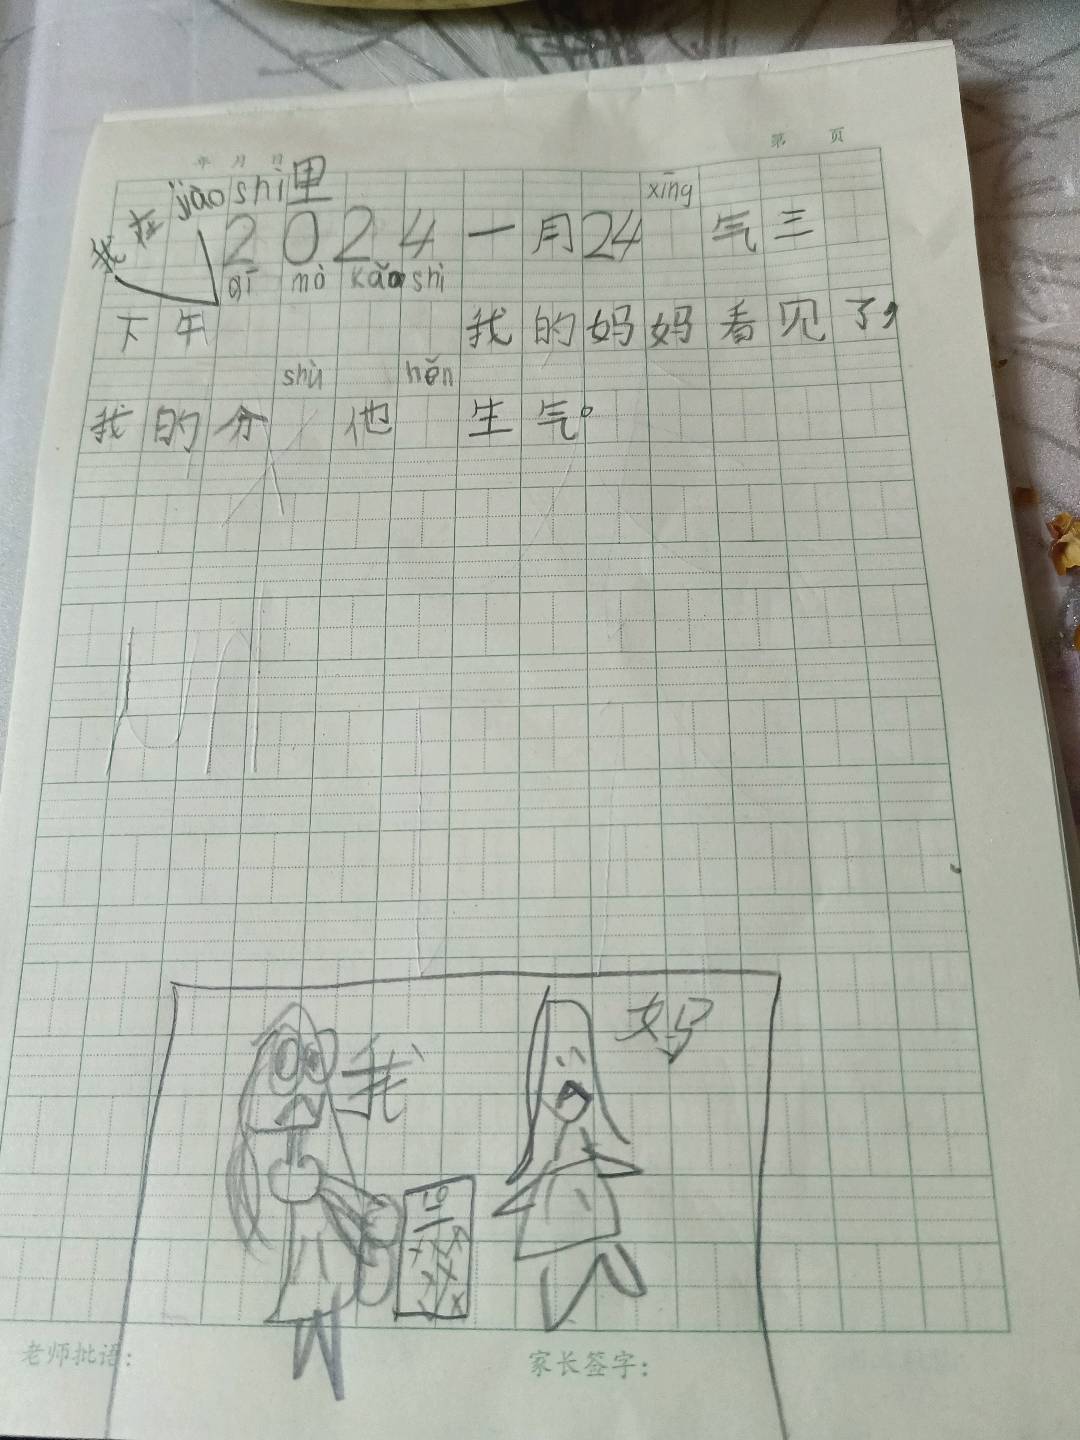 年 月 日
第 页
我在jiào shì里
xīng
2024一月24 气三
qī mò kǎo shì
下午 我的妈妈看见了，
shù hěn
我的分 他 生气。
我
妈
10
老师批语：
家长签字：